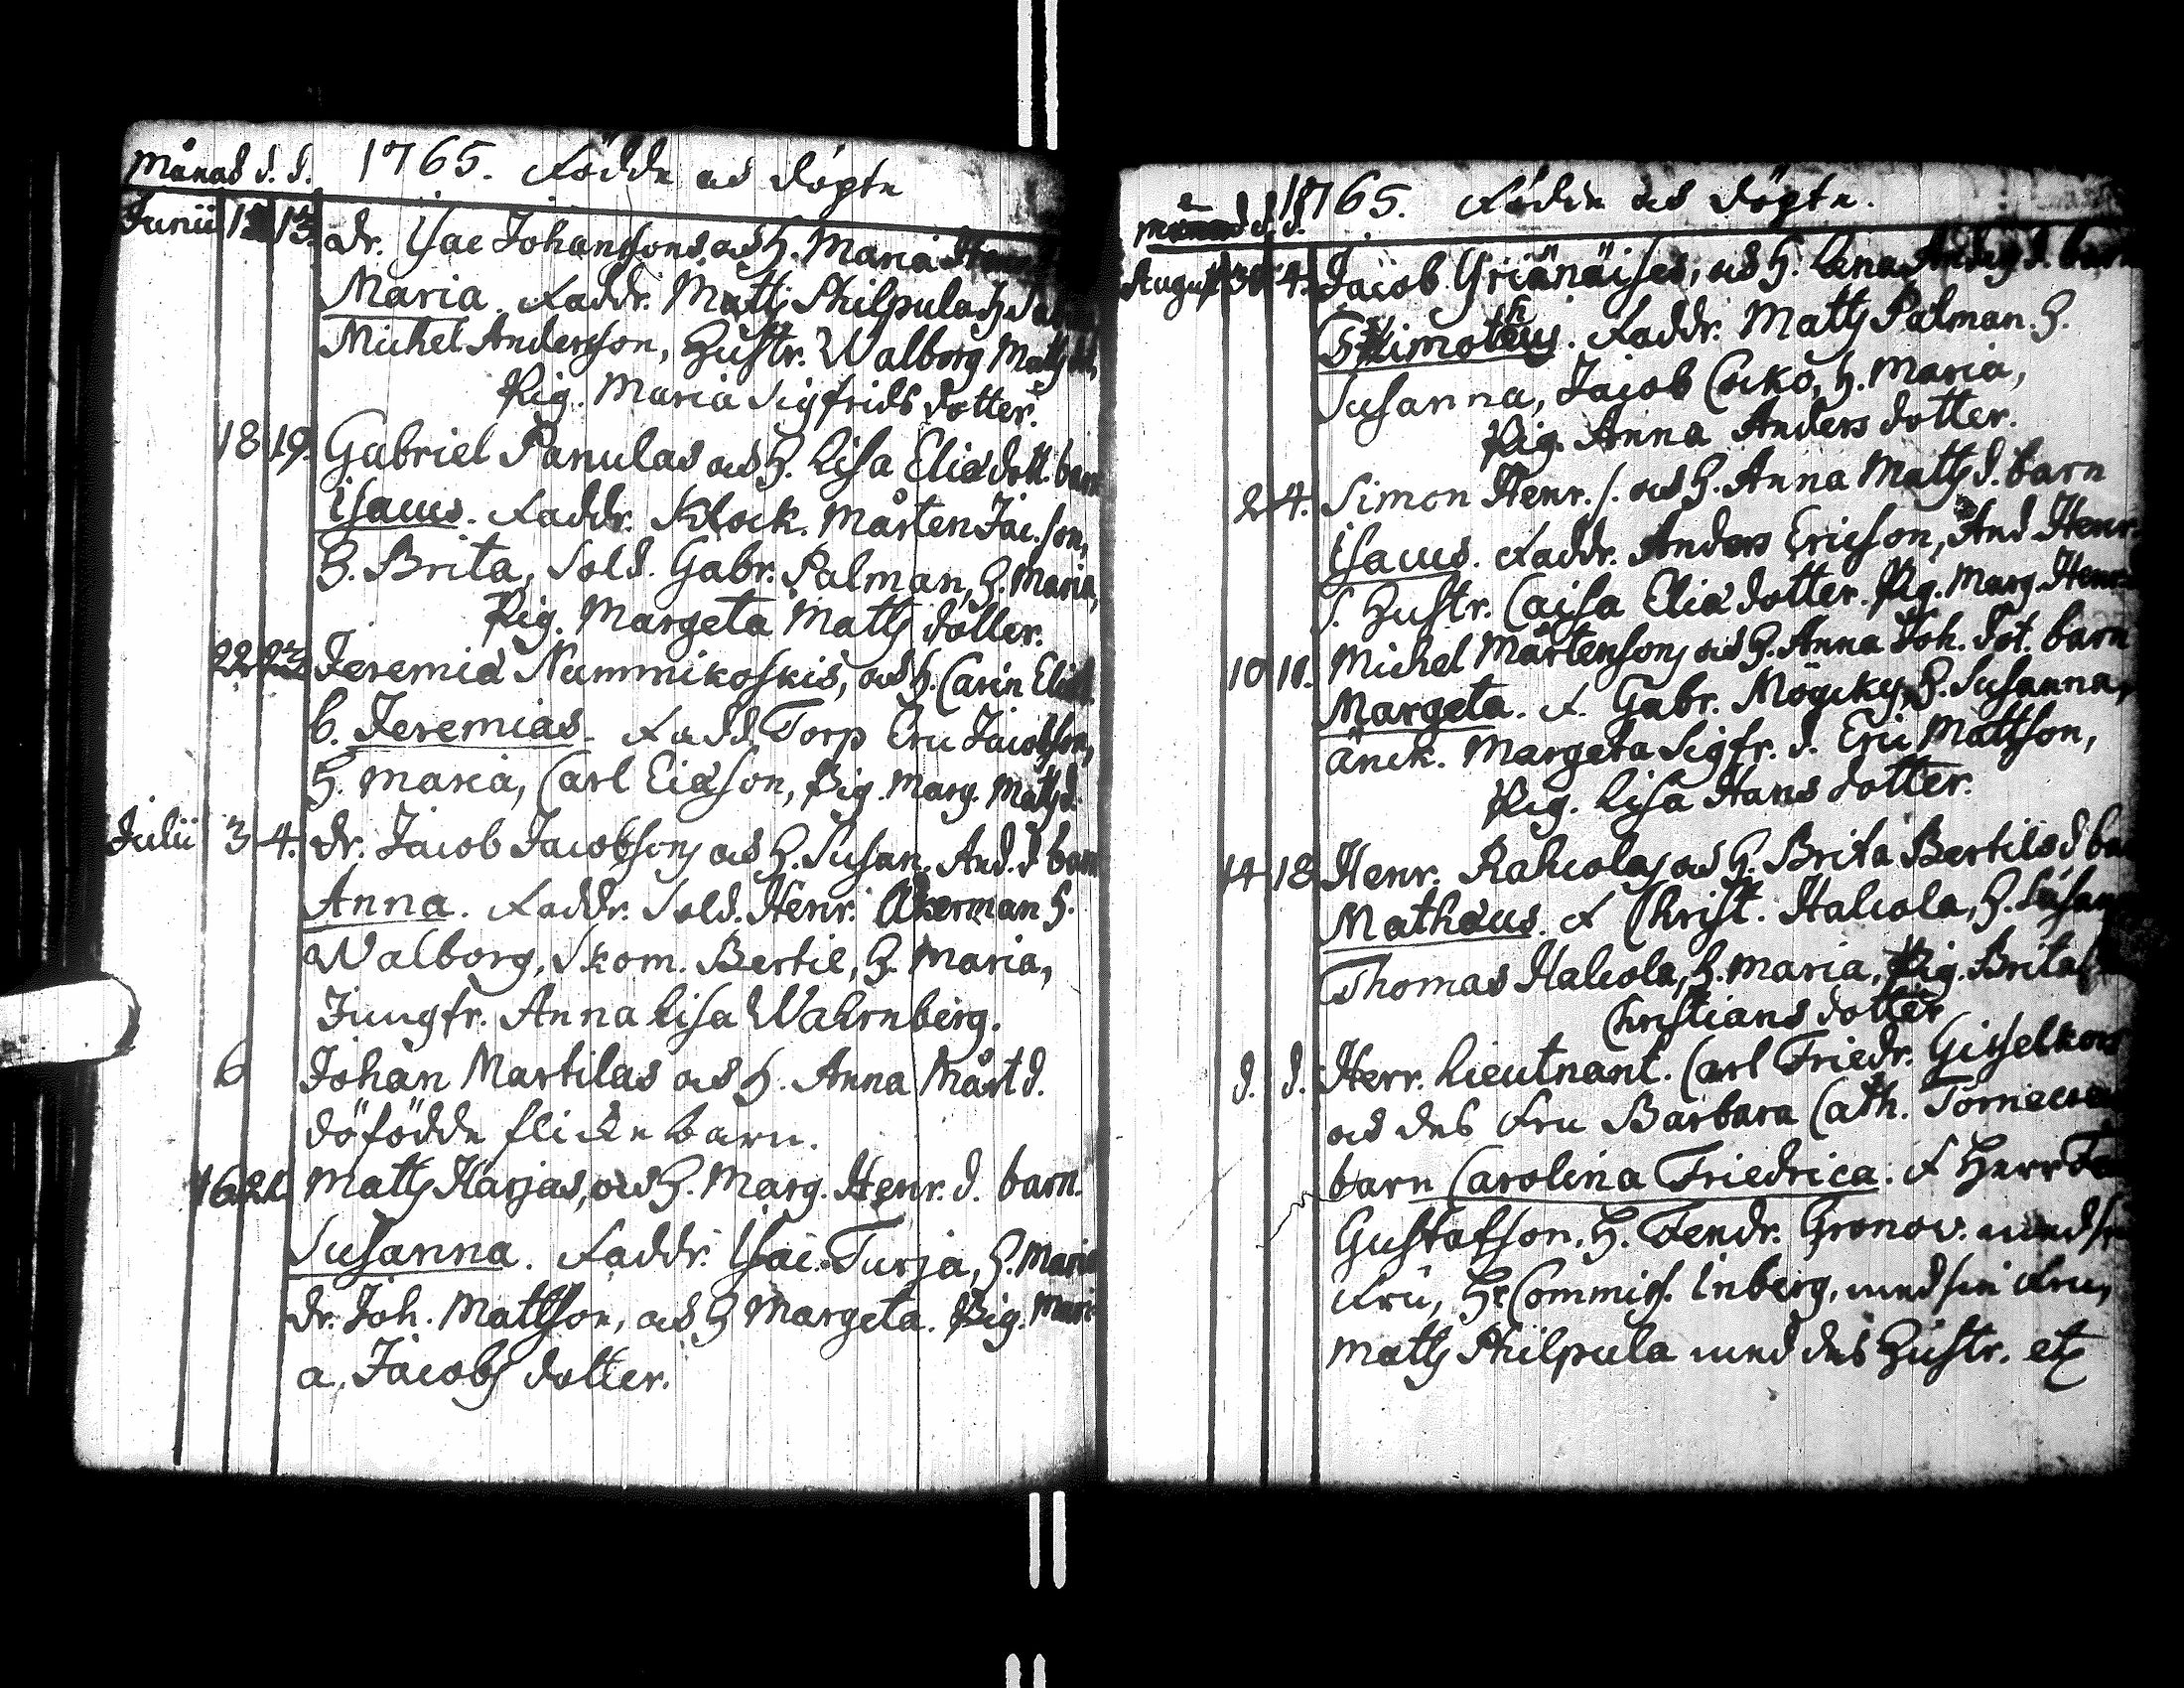 Månad d. d. 1765. Födde och döpte
Junii 13. dr. Isac Johanssons, och H. Maria
Maria. Faddr. Matts Philpula H.
Michel Andersson, Hustr. Walborg Matts dot,
Pig. Maria Sigfrids dotter.
18 19. Gabriel Panulas och H. Lisa Eliæ dott. barn
Isacus. Faddr. Klock. Mårten Jac. son,
H. Brita, Sold. Gabr. Palman, H. Maria,
Pig. Margeta Matts dotter.
22 23 Jeremiæ Nummikoskis, och H. Carin Eliæ d.
b. Jeremias. Fadd. Torp Eric Jacobsson,
H. Maria, Carl Eliæson, Pig. Marg. Matts d.
Julii 3 4. dr. Jacob Jacobsons och H. Susan. And. d barn
Anna. Faddr. Sold. Henr. Åkerman H.
Walborg, Skom. Bertil, H. Maria,
Jungfr. Anna Lisa Wahrnberg.
6 Johan Martilas och H. Anna Mårt d.
döfödde flicke barn.
16 21. Matts Harjas, och H. Marg. Henr. d. barn.
Susanna. Faddr. Isac Turja, H. Maria
dr. Joh. Mattsson, och H Margeta. Pig. Mari
a Jacobs dotter.
Månad d. d. 1765. Födde och döpte.
August 4. Jacob och H. Lena Anders d. barn
Thimotheus. Faddr. Matts Palman. H.
Susanna, Jacob H. Maria,
Pig. Anna Anders dotter.
2 4. Simon Henr. s. och H. Anna Matts d. barn
Isacus. Faddr. Anders Ericsson, And Henr.
s. Hustr. Caisa Eliæ dotter. Pig. Marg. Henr.
10 11. Michel Mårtensons och H. Anna Joh. dot. barn
Margeta. F. Gabr. H. Susanna,
änck. Margeta Sigfr. d. Eric Mattsson,
Pig. Lisa Hans dotter.
14 18 Henr. Rahcolas och H. Brita Bertils d barn
Mathæus. F Christ. Halcola, H. Susan
Thomas Halcola, H. Maria, Pig. Brita
Christians dotter
d. d. Herr. Lieutnant. Carl Friedr. Gisselkors
och des Fru Barbara Cath.
barn Carolina Friedrica. F Herr
Gustafson, H. Fendr. Gronow. med
Fru, Hr Commiss. Enberg, med sin Fru,
Matts Philpula med des Hustr. etc